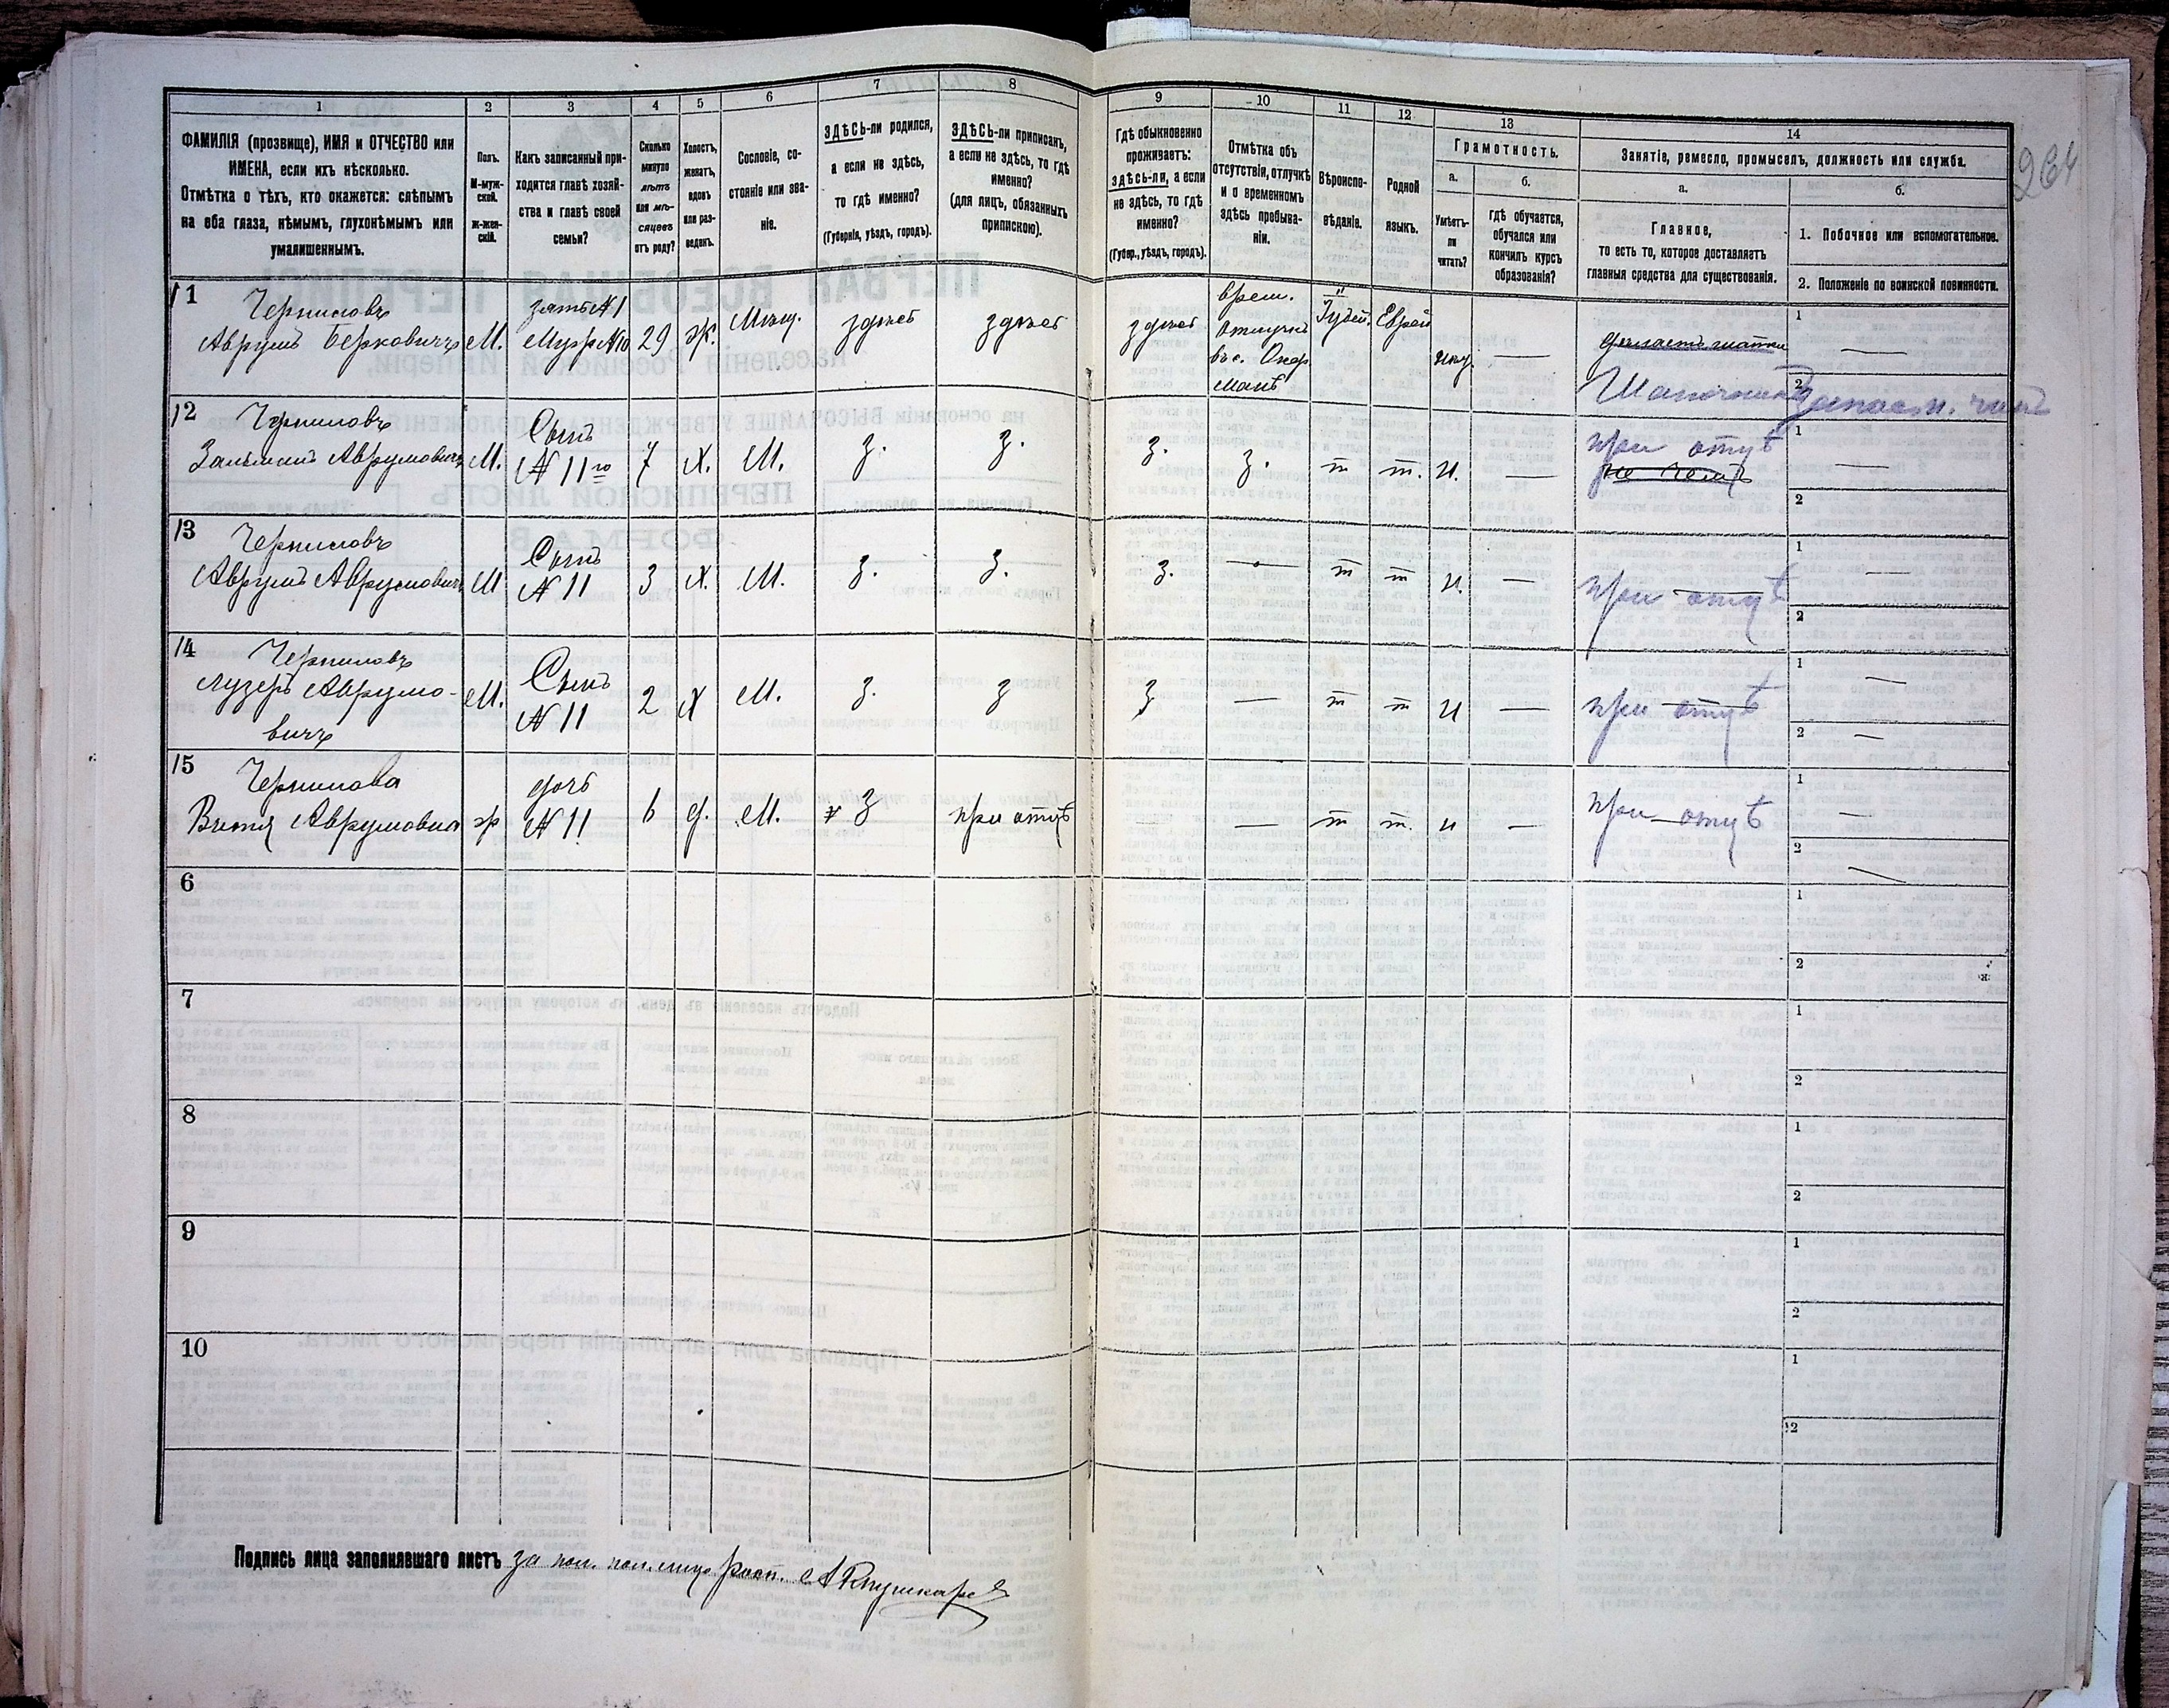 264
1
2
3
4
5
6
7
8
9
10
11
12
13
14
ФАМИЛІЯ (прозвище), ИМЯ и ОТЧЕСТВО или
ИМЕНА, если ихъ нѣсколько.
Отмѣтка о тѣхъ, кто окажется: слѣпымъ
на оба глаза, нѣмымъ, глухонѣмымъ или
умалишеннымъ.
Полъ.
М-муж-
ской.
Ж-жен-
скій.
Какъ записанный при-
ходится главѣ хозяй-
ства и главѣ своей
семьи?
Сколько
минуло
лѣтъ
или мѣ-
сяцевъ
отъ роду?
Холостъ,
женатъ,
вдовъ
или раз-
веденъ.
Сословіе, со-
стояніе или зва-
ніе.
ЗДѢСЬ-ли родился,
а если не здѣсь,
то гдѣ именно?
(Губернія, уѣздъ, городъ).
ЗДѢСЬ-ли приписанъ,
а если не здѣсь, то гдѣ
именно?
(для лицъ, обязанныхъ
припискою).
Гдѣ обыкновенно
проживаетъ:
здѣсь-ли, а если
не здѣсь, то гдѣ
именно?
(Губер., уѣздъ, городъ).
Отмѣтка объ
отсутствіи, отлучкѣ
и о временномъ
здѣсь пребыва-
ніи.
Вѣроиспо-
вѣданіе.
Родной
языкъ.
Грамотность.
а.
Умѣетъ-
ли
читать?
б.
гдѣ обучается,
обучался или
кончилъ курсъ
образованія?
Занятіе, ремесло, промыселъ, должность или служба.
а.
Главное,
то есть то, которое доставляетъ
главныя средства для существованія.
б.
1. Побочное или вспомогательное.
2. Положеніе по воинской повинности.
11
Черниловъ
Аврумъ Берковичъ
М.
зять №1
Мужъ №10
29
ж.
Мѣщ.
здѣсь
здѣсь
здѣсь
врем.
отлучкѣ
въ с.
Іудей.
Еврей
—
дѣлаетъ шапки
1
—
2
12
Черниловъ
Аврумовичъ
М.
Сынъ
№ 11го
7
Х.
М.
З.
З.
З.
З.
т
т.
н.
—
при отцѣ
1
—
2
13
Черниловъ
Аврумъ Аврумовичъ
М
Сынъ
№ 11
3
Х.
М.
З.
З.
З.
—
т
т
н.
—
при отцѣ
1
—
2
14
Черниловъ
Лузеръ Аврумо-
вичъ
М.
Сынъ
№ 11
2
Х
М.
З.
З
З
—
т
т
н
—
при отцѣ
1
—
2
—
15
Чернилова
Аврумовна
ж
дочь
№ 11
6
д.
М.
З
при отцѣ
—
т
т.
н
—
при отцѣ
1
—
2
—
6
1
2
7
1
2
8
1
2
9
1
2
10
1
2
Подпись лица заполнявшаго листъ за